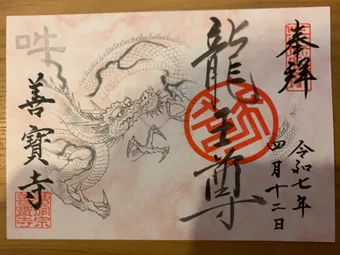 奉拜
令和七年
四月十二日
龍王尊
善寳寺
吽